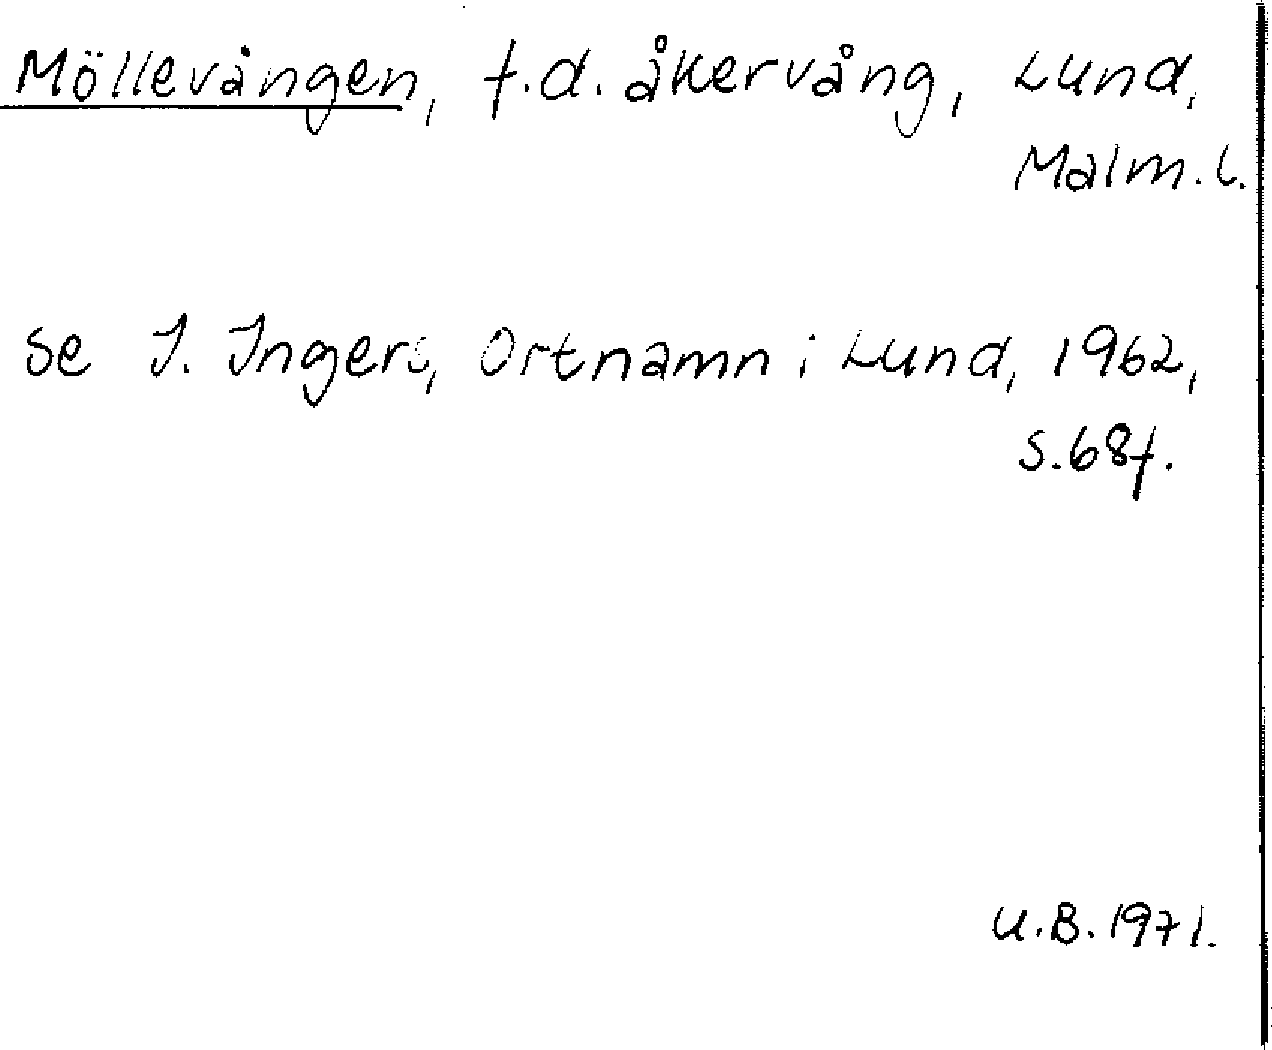 Möllevången, f.d. åkervång, Lund,
Malm.l.
se I. Ingers, Ortnamn i Lund, 1962,
s.68f.
U.B.1971.